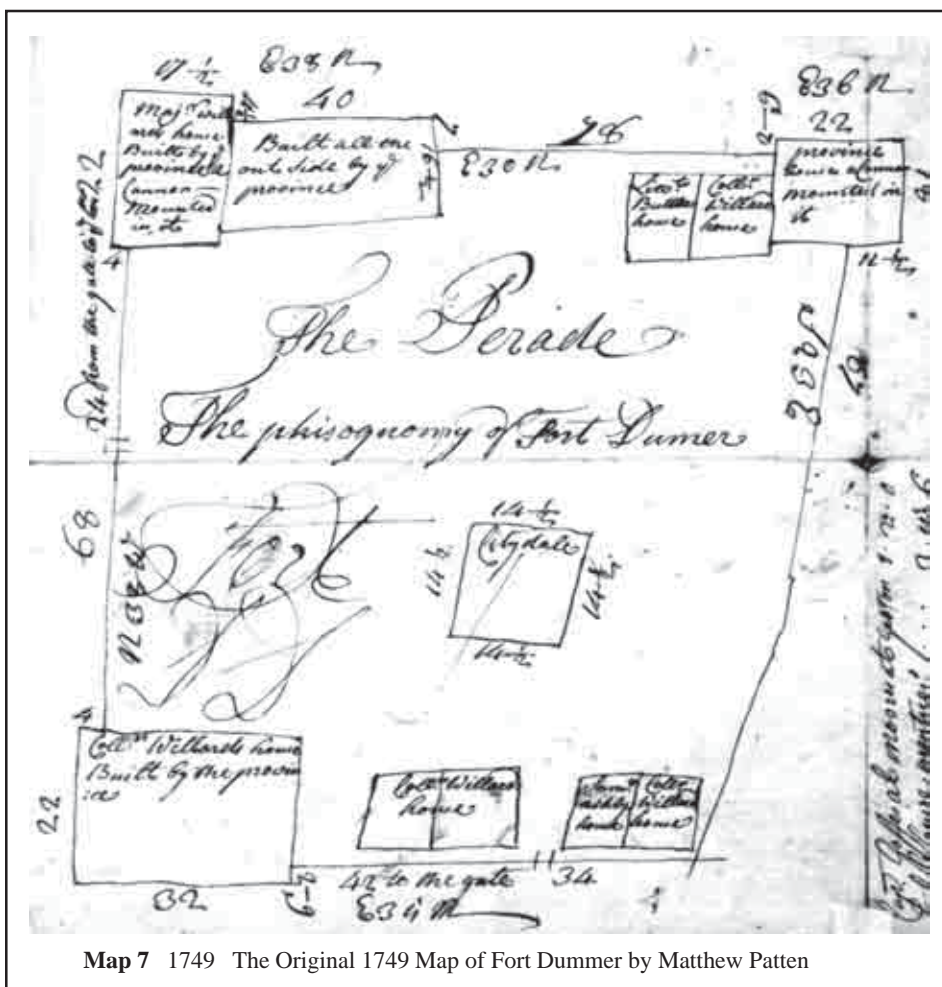 17 1/2
E38 N
40
E36 N
22
Majr Will
ards house
Built by ye
province a
Cannon
Mounted
in it
Built all one
out side by ye
province
78
E30 N
Lieut
Butler
house
Colln
Willard
house
province
house a Cannon
mounted in
it
11 1/2
4
24 from the gate to ye
22
The Perade
The phisognomy of Fort Dumer
68
N 33 W
Fort
14 1/2
Citydale
14 1/2
14 1/2
14 1/2
4
Colln Willards house
Built by the provin
:ce
22
32
Colln Willard
house
house
Colln
Willard
house
42 to the gate
34
Map 7 1749 The Original 1749 Map of Fort Dummer by Matthew Patten